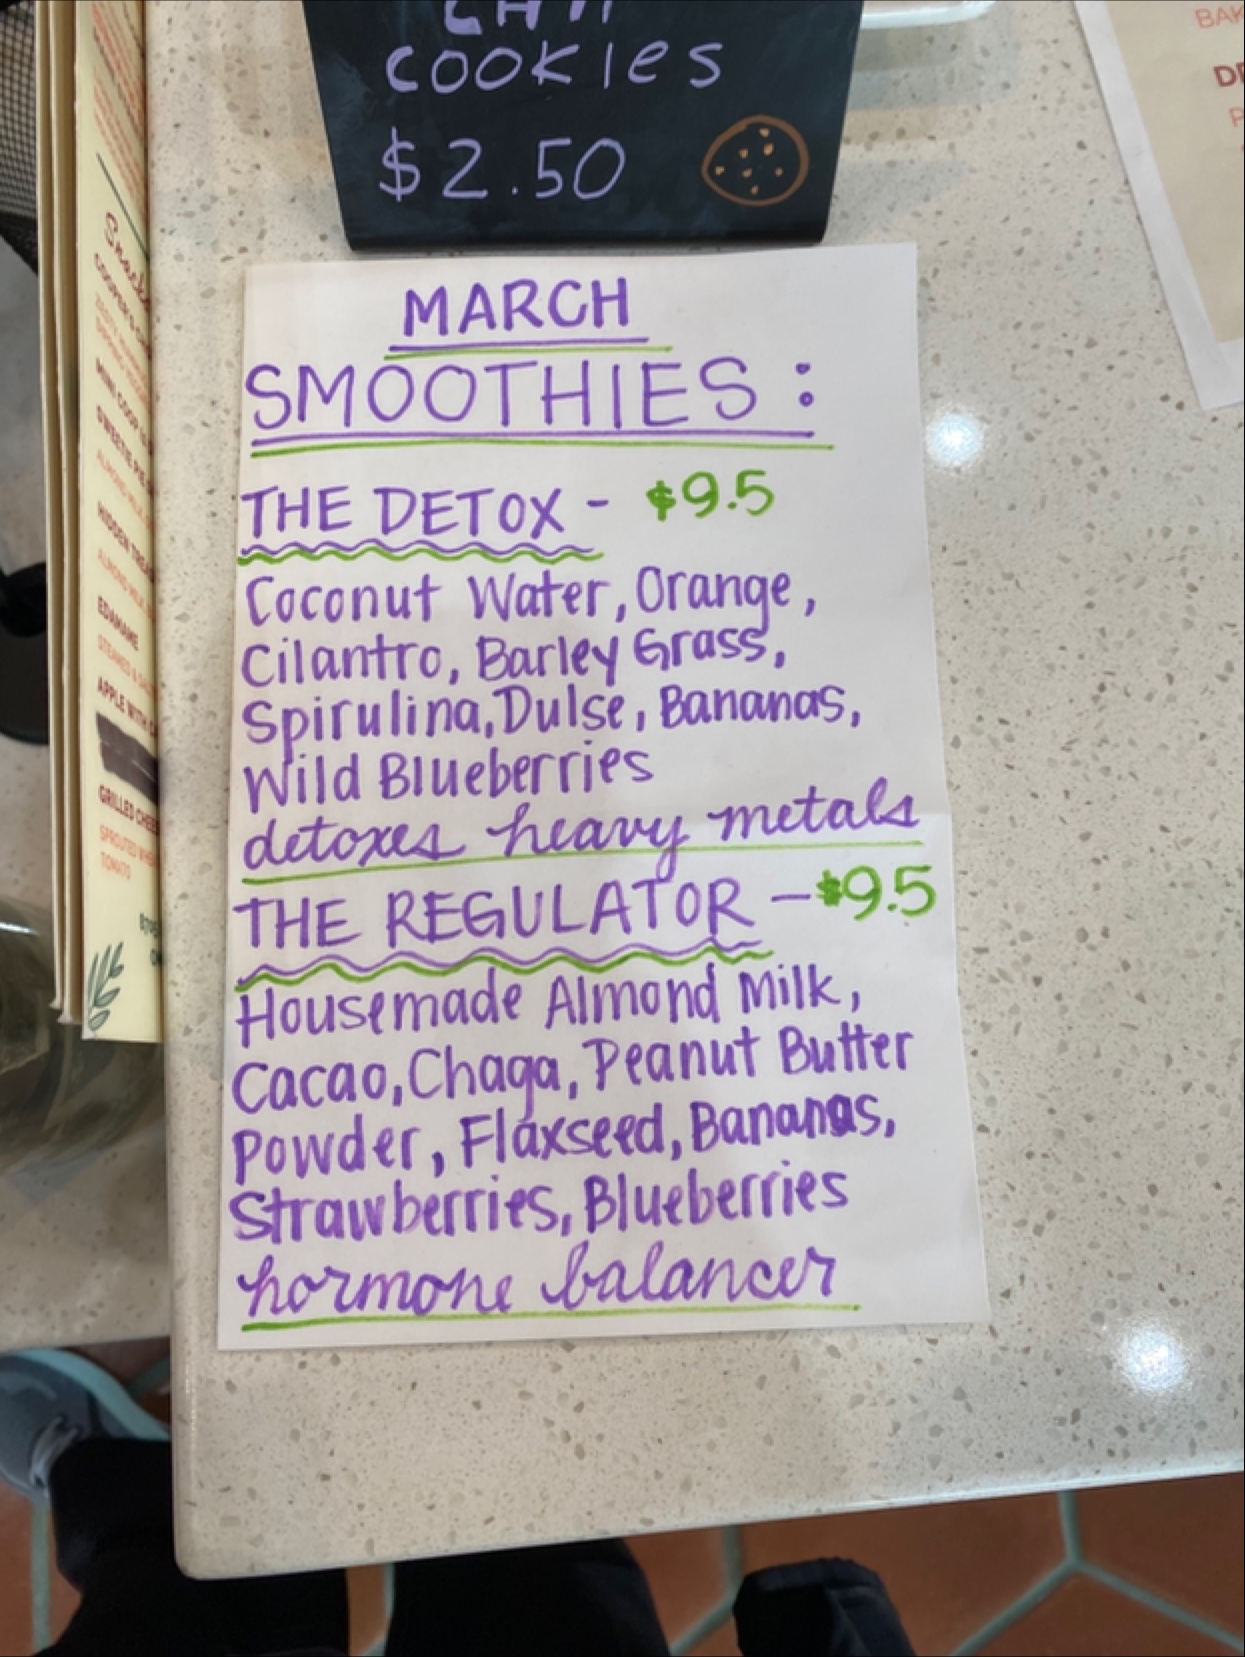 COOKIES
$2.50
MARCH
SMOOTHIES:
THE DETOX - $9.5
Coconut Water, Orange,
Cilantro, Barley Grass,
Spirulina, Dulse, Bananas,
Wild Blueberries
detoxes heavy metals
THE REGULATOR - $9.5
Housemade Almond Milk,
Cacao, Chaga, Peanut Butter
Powder, Flaxseed, Bananas,
Strawberries, Blueberries
hormone balancer
MINI COOP
SWEETIE PIE
HIDDEN
EDAMAME
STEAMED &
APPLE WITH
GRILLED
SPROUTED
TOMATO